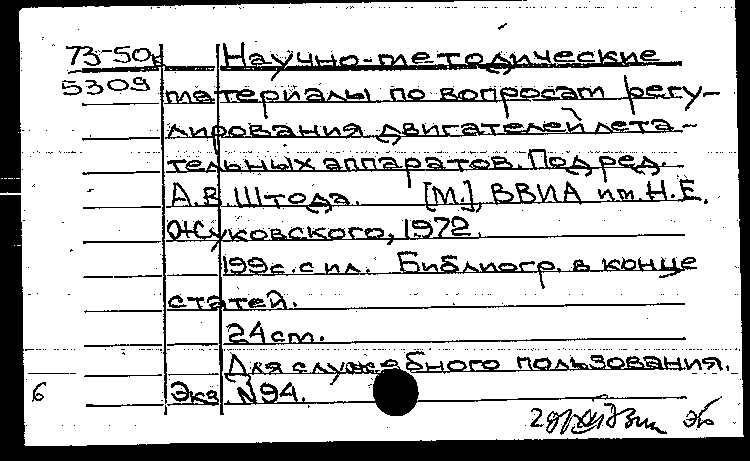 73-50к Научно-методические
5309 материалы по вопросам регу-
лирования двигателей лета-
тельных аппаратов. Под ред.
А.В. Штода. [М.], ВВИА им. Н.Е.
Жуковского, 1972.
199с. с ил. Библиогр. в конце
статей.
24 см.
Для служебного пользования.
6 Экз N94.